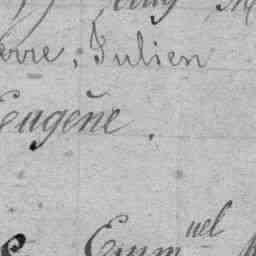 erre, Julien
Eugène.
Emm^uel